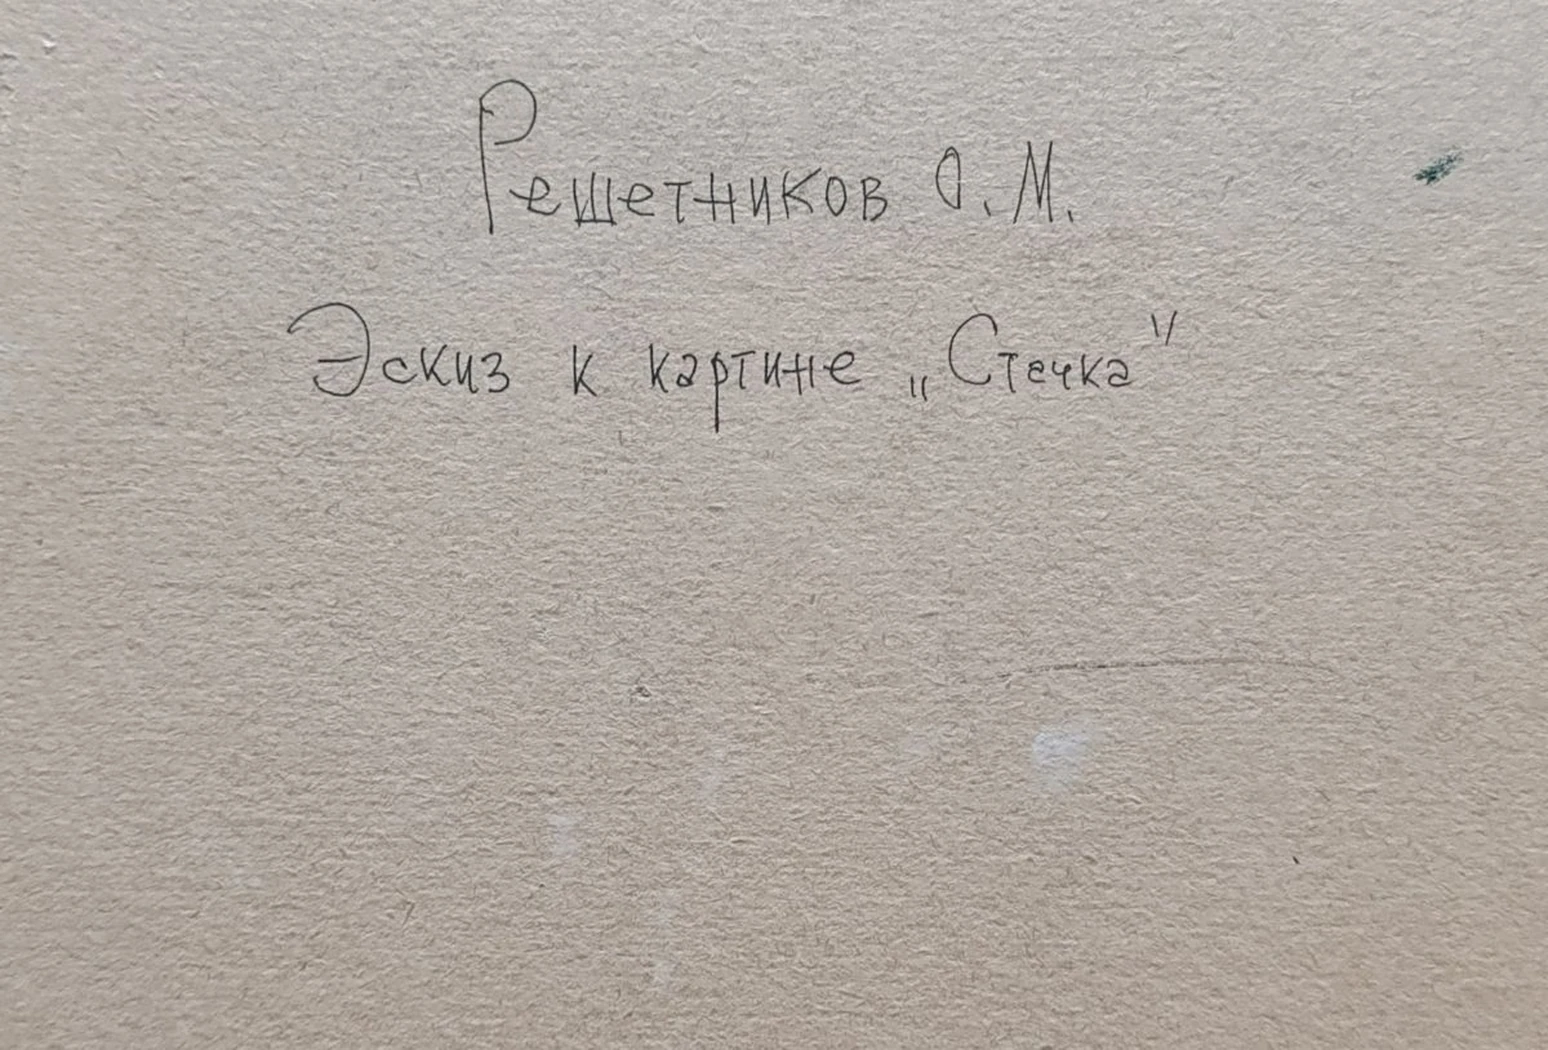 Решетников О. М.
Эскиз к картине „Стачка"